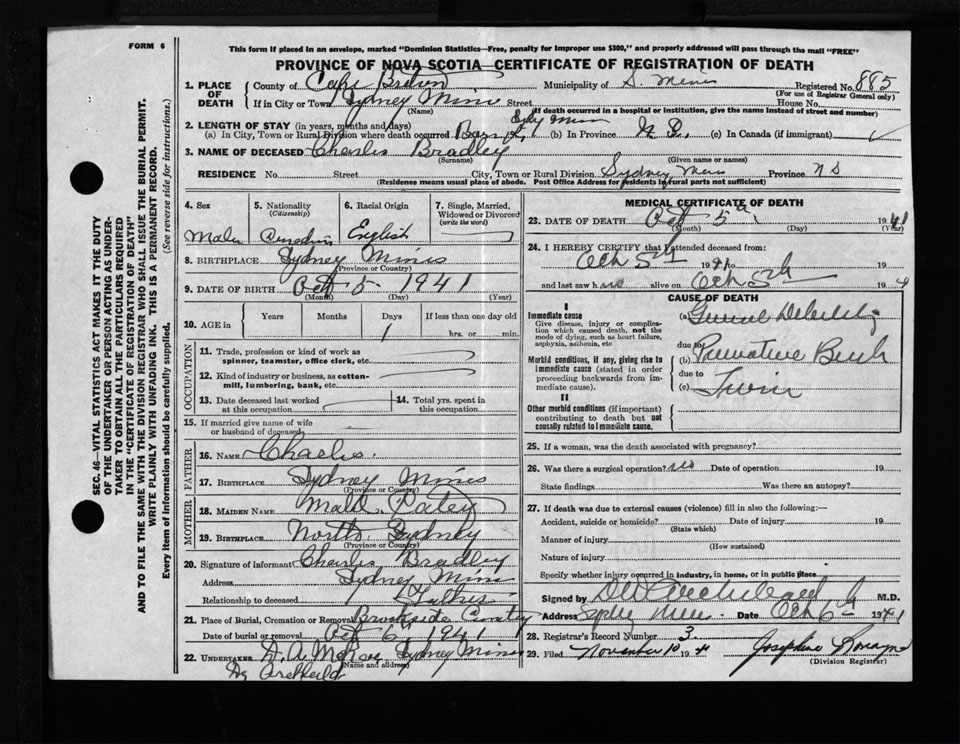 FORM 6
This form if placed in an envelope, marked "Dominion Statistics—Free, penalty for improper use $300," and properly addressed will pass through the mail "FREE"
PROVINCE OF NOVA SCOTIA—CERTIFICATE OF REGISTRATION OF DEATH
1. PLACE OF DEATH
County of Cape Breton Municipality of S. Mines Registered No. 885
(For use of Registrar General only)
If in City or Town Sydney Mines Street House No.
(Name) (If death occurred in a hospital or institution, give the name instead of street and number)
2. LENGTH OF STAY (in years, months and days)
(a) In City, Town or Rural Division where death occurred (b) In Province N S. (c) In Canada (if immigrant)
3. NAME OF DECEASED Charles Bradley
(Surname) (Given name or names)
RESIDENCE No. Street City, Town or Rural Division Sydney Mines Province N S
(Residence means usual place of abode. Post Office Address for residents in rural parts not sufficient)
4. Sex
Male
5. Nationality
(Citizenship)
Canadian
6. Racial Origin
English
7. Single, Married, Widowed or Divorced
(write the word)
8. BIRTHPLACE Sydney Mines
(Province or Country)
9. DATE OF BIRTH Oct 5 1941
(Month) (Day) (Year)
10. AGE in Years Months Days If less than one day old
1 hrs. or min.
OCCUPATION
11. Trade, profession or kind of work as spinner, teamster, office clerk, etc.
12. Kind of industry or business, as cotton-mill, lumbering, bank, etc.
13. Date deceased last worked at this occupation
14. Total yrs. spent in this occupation
15. If married give name of wife or husband of deceased
FATHER
16. NAME Charles.
17. BIRTHPLACE Sydney Mines
(Province or Country)
MOTHER
18. MAIDEN NAME
19. BIRTHPLACE North Sydney
(Province or Country)
20. Signature of informant Charles Bradley
Address Sydney Mines
Relationship to deceased Father
21. Place of Burial, Cremation or Removal Brookside
Date of burial or removal Oct 6, 1941
22. UNDERTAKER D. A. Sydney Mines
(Name and address)
MEDICAL CERTIFICATE OF DEATH
23. DATE OF DEATH Oct 5th 1941
(Month) (Day) (Year)
24. I HEREBY CERTIFY that I attended deceased from:
Oct 5th 1941 19
and last saw h alive on Oct 5th 194
CAUSE OF DEATH
I
Immediate cause
Give disease, injury or complication which caused death, not the mode of dying, such as heart failure, asphyxia, asthenia, etc.
(a)
due to
Morbid conditions, if any, giving rise to immediate cause (stated in order proceeding backwards from immediate cause).
(b) Premature Birth
due to
(c) Twin
II
Other morbid conditions (if important) contributing to death but not causally related to immediate cause.
25. If a woman, was the death associated with pregnancy?
26. Was there a surgical operation? no Date of operation 19
State findings Was there an autopsy?
27. If death was due to external causes (violence) fill in also the following:—
Accident, suicide or homicide? Date of injury 19
(State which)
Manner of injury
(How sustained)
Nature of injury
Specify whether injury occurred in industry, in home, or in public place
Signed by M.D.
Address Date Oct 6th 1941
28. Registrar's Record Number 3
29. Filed November 10 194 Josephine
(Division Registrar)
SEC. 46—VITAL STATISTICS ACT MAKES IT THE DUTY
OF THE UNDERTAKER OR PERSON ACTING AS UNDER-
TAKER TO OBTAIN ALL THE PARTICULARS REQUIRED
IN THE "CERTIFICATE OF REGISTRATION OF DEATH"
AND TO FILE THE SAME WITH THE DIVISION REGISTRAR WHO SHALL ISSUE THE BURIAL PERMIT.
WRITE PLAINLY WITH UNFADING INK. THIS IS A PERMANENT RECORD.
Every item of Information should be carefully supplied. (See reverse side for instructions.)